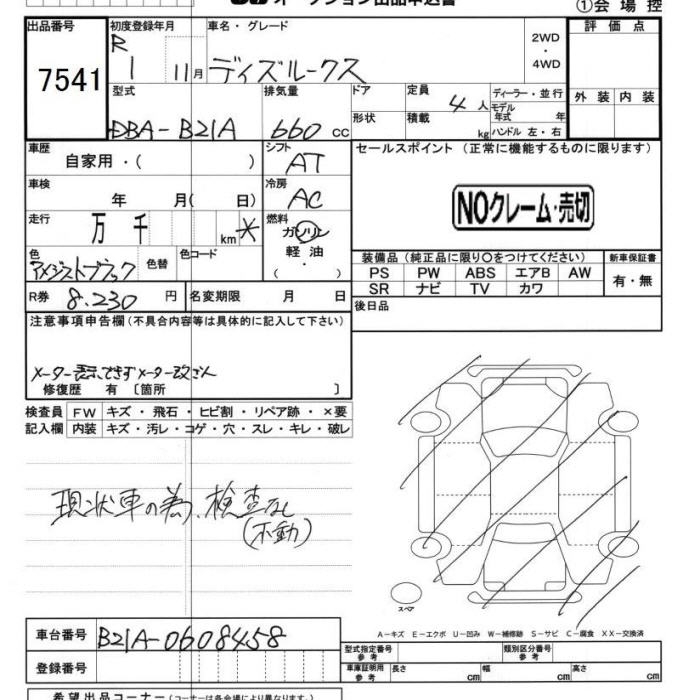 オークション出品申込書
①会場控
出品番号 初度登録年月 車名・グレード 評価点
7541 R1 11月 ディズルークス 2WD・4WD
型式 排気量 ドア 定員 ディーラー・並行 外装 内装
DBA-B21A 660cc 4人 モデル年式 年
形状 積載 kg ハンドル 左・右
車歴 シフト セールスポイント (正常に機能するものに限ります)
自家用・( ) AT
車検 冷房
年 月( 日) AC
NOクレーム・売切
走行 燃料
万 千 km * ガソリン
色 色替 色コード 軽油
アメジストブラック ( ・ )
装備品(純正品に限り○をつけてください) 新車保証書
PS PW ABS エアB AW 有・無
SR ナビ TV カワ
R券 8.230 円 名変期限 月 日 後日品
注意事項申告欄(不具合内容等は具体的に記入して下さい)
メーター表示できず メーター改ざん
修復歴 有 〔箇所 〕
検査員 FW キズ・飛石・ヒビ割・リペア跡・×要
記入欄 内装 キズ・汚レ・コゲ・穴・スレ・キレ・破レ
現状車の為、検査なし
(不動)
スペア
A-キズ E-エクボ U-凹み W-補修跡 S-サビ C-腐食 XX-交換済
車台番号 B21A-0608458
型式指定番号参考 類別区分番号参考
登録番号 車庫証明用参考 長さ cm 幅 cm 高さ cm
希望出品コーナー(コーナーは各会場により異なります。)